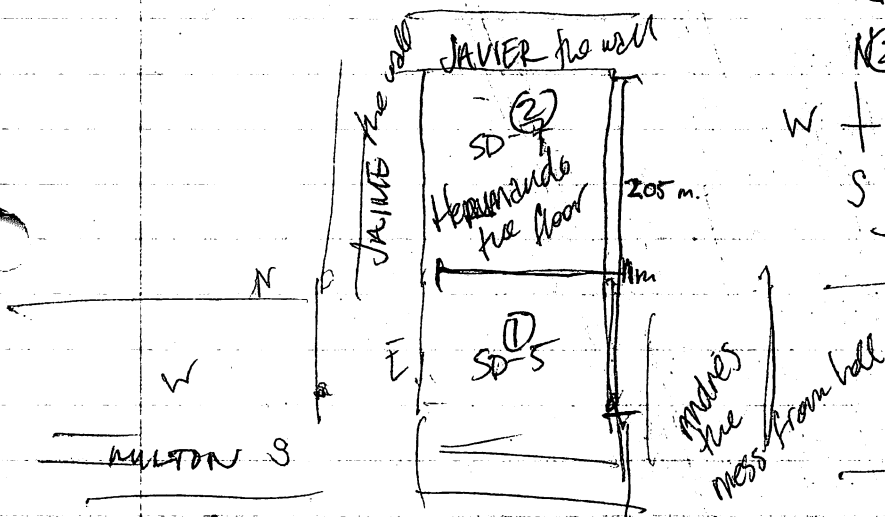 JAVIER the wall
JAIME the wall
②
SD-7
Hernando
the floor
205 m.
1m
①
SD-5
N
W
E
MILTON S
Andrés
the
mess from wall
N
W
S